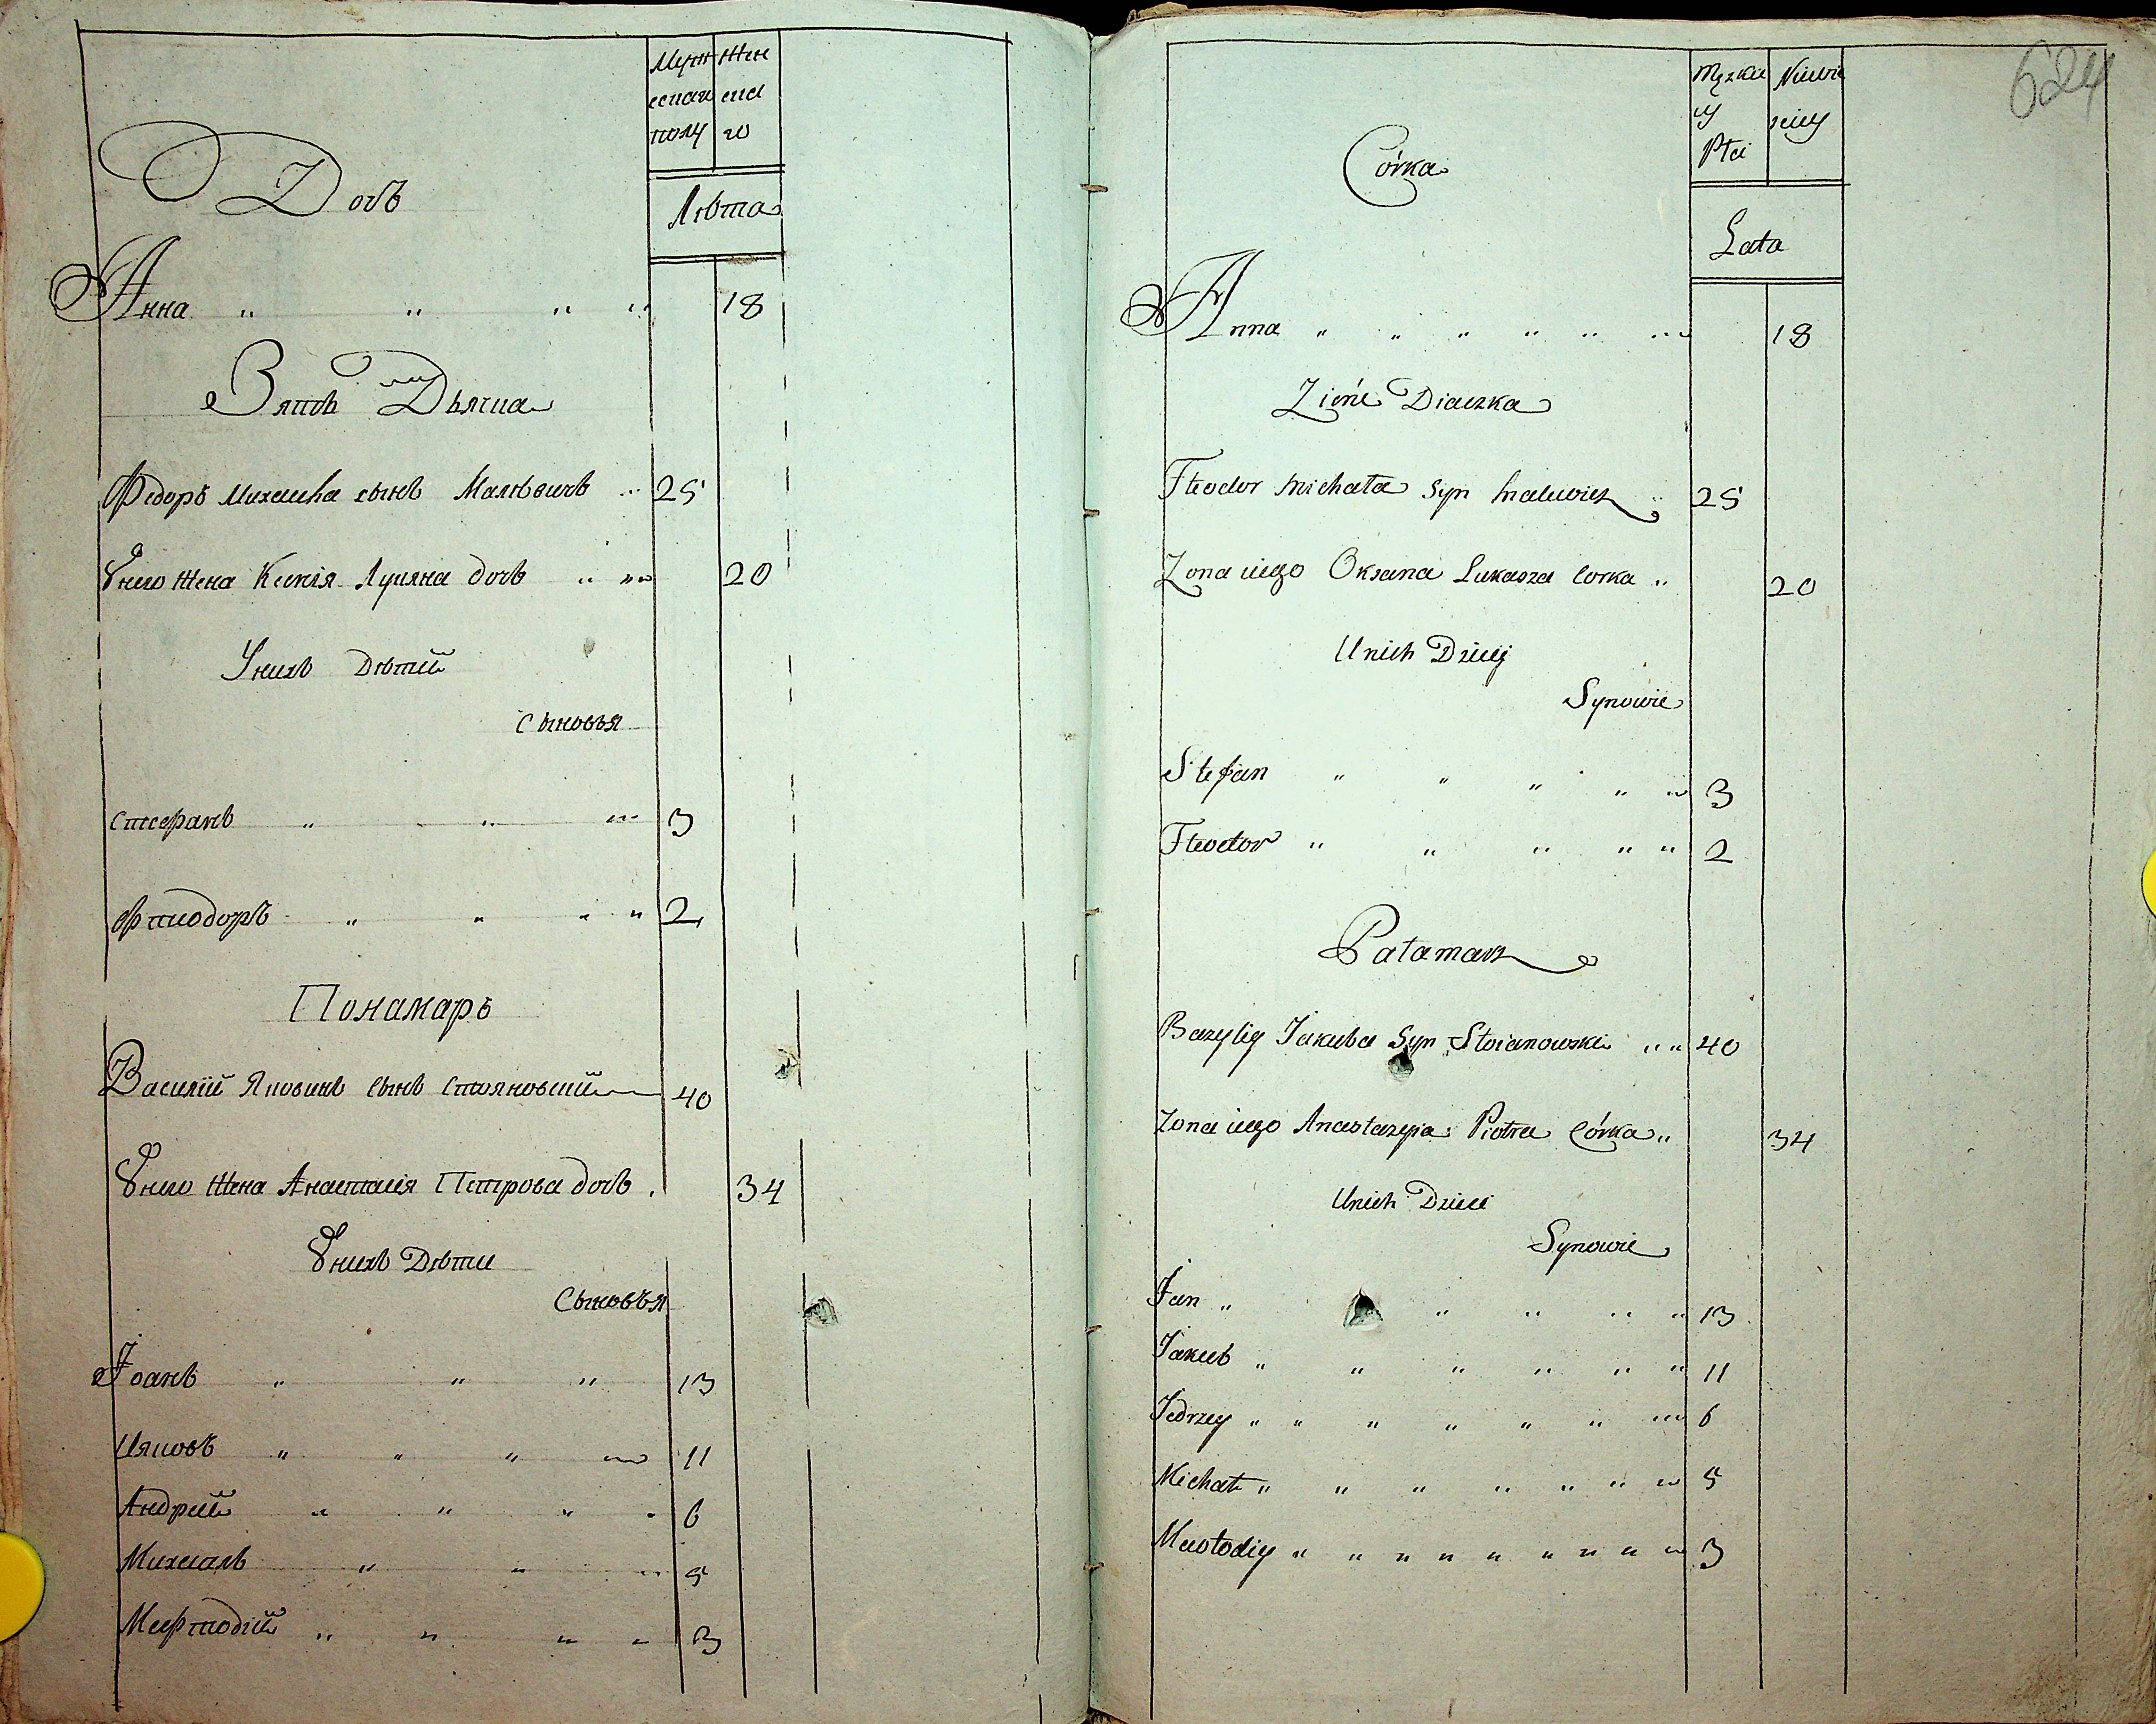 Муж Жен
ескаг ска
полу го
Лѣта
Дочь
Анна 18
Зять Дьячка
Федоръ Михаила сынъ Малѣвичь 25
Унего жена Ксенія Лукяна дочь 20
Унихъ Дѣтий
Сыновья
Стефанъ 3
Фтиодоръ 2
Понамаръ
Василій Яковинъ сынъ Стояновский 40
Унего жена Анастасія Петрова дочь 34
Унихъ Дѣти
Сыновъя
Іоанъ 13
Ияковъ 11
Андрий 6
Михаилъ 5
Мефтодій 3
624
Męzkie Niewie
y sciey
Płci
Lata
Córka
Anna 18
Zięńć Diaczka
Fteodor Michała Syn Malewicz 25
Zona iego Oksana Łukasza Corka 20
Unich Dzieci
Synowie
Stefan 3
Fteodor 2
Patamarz
Bazyliy Jakuba Syn Stoianowski 40
Zona iego Anastazyia Piotra Córka 34
Unich Dzieci
Synowie
Jan 13
Jakub 11
Jedrzey 6
Michał 5
Meotodiy 3